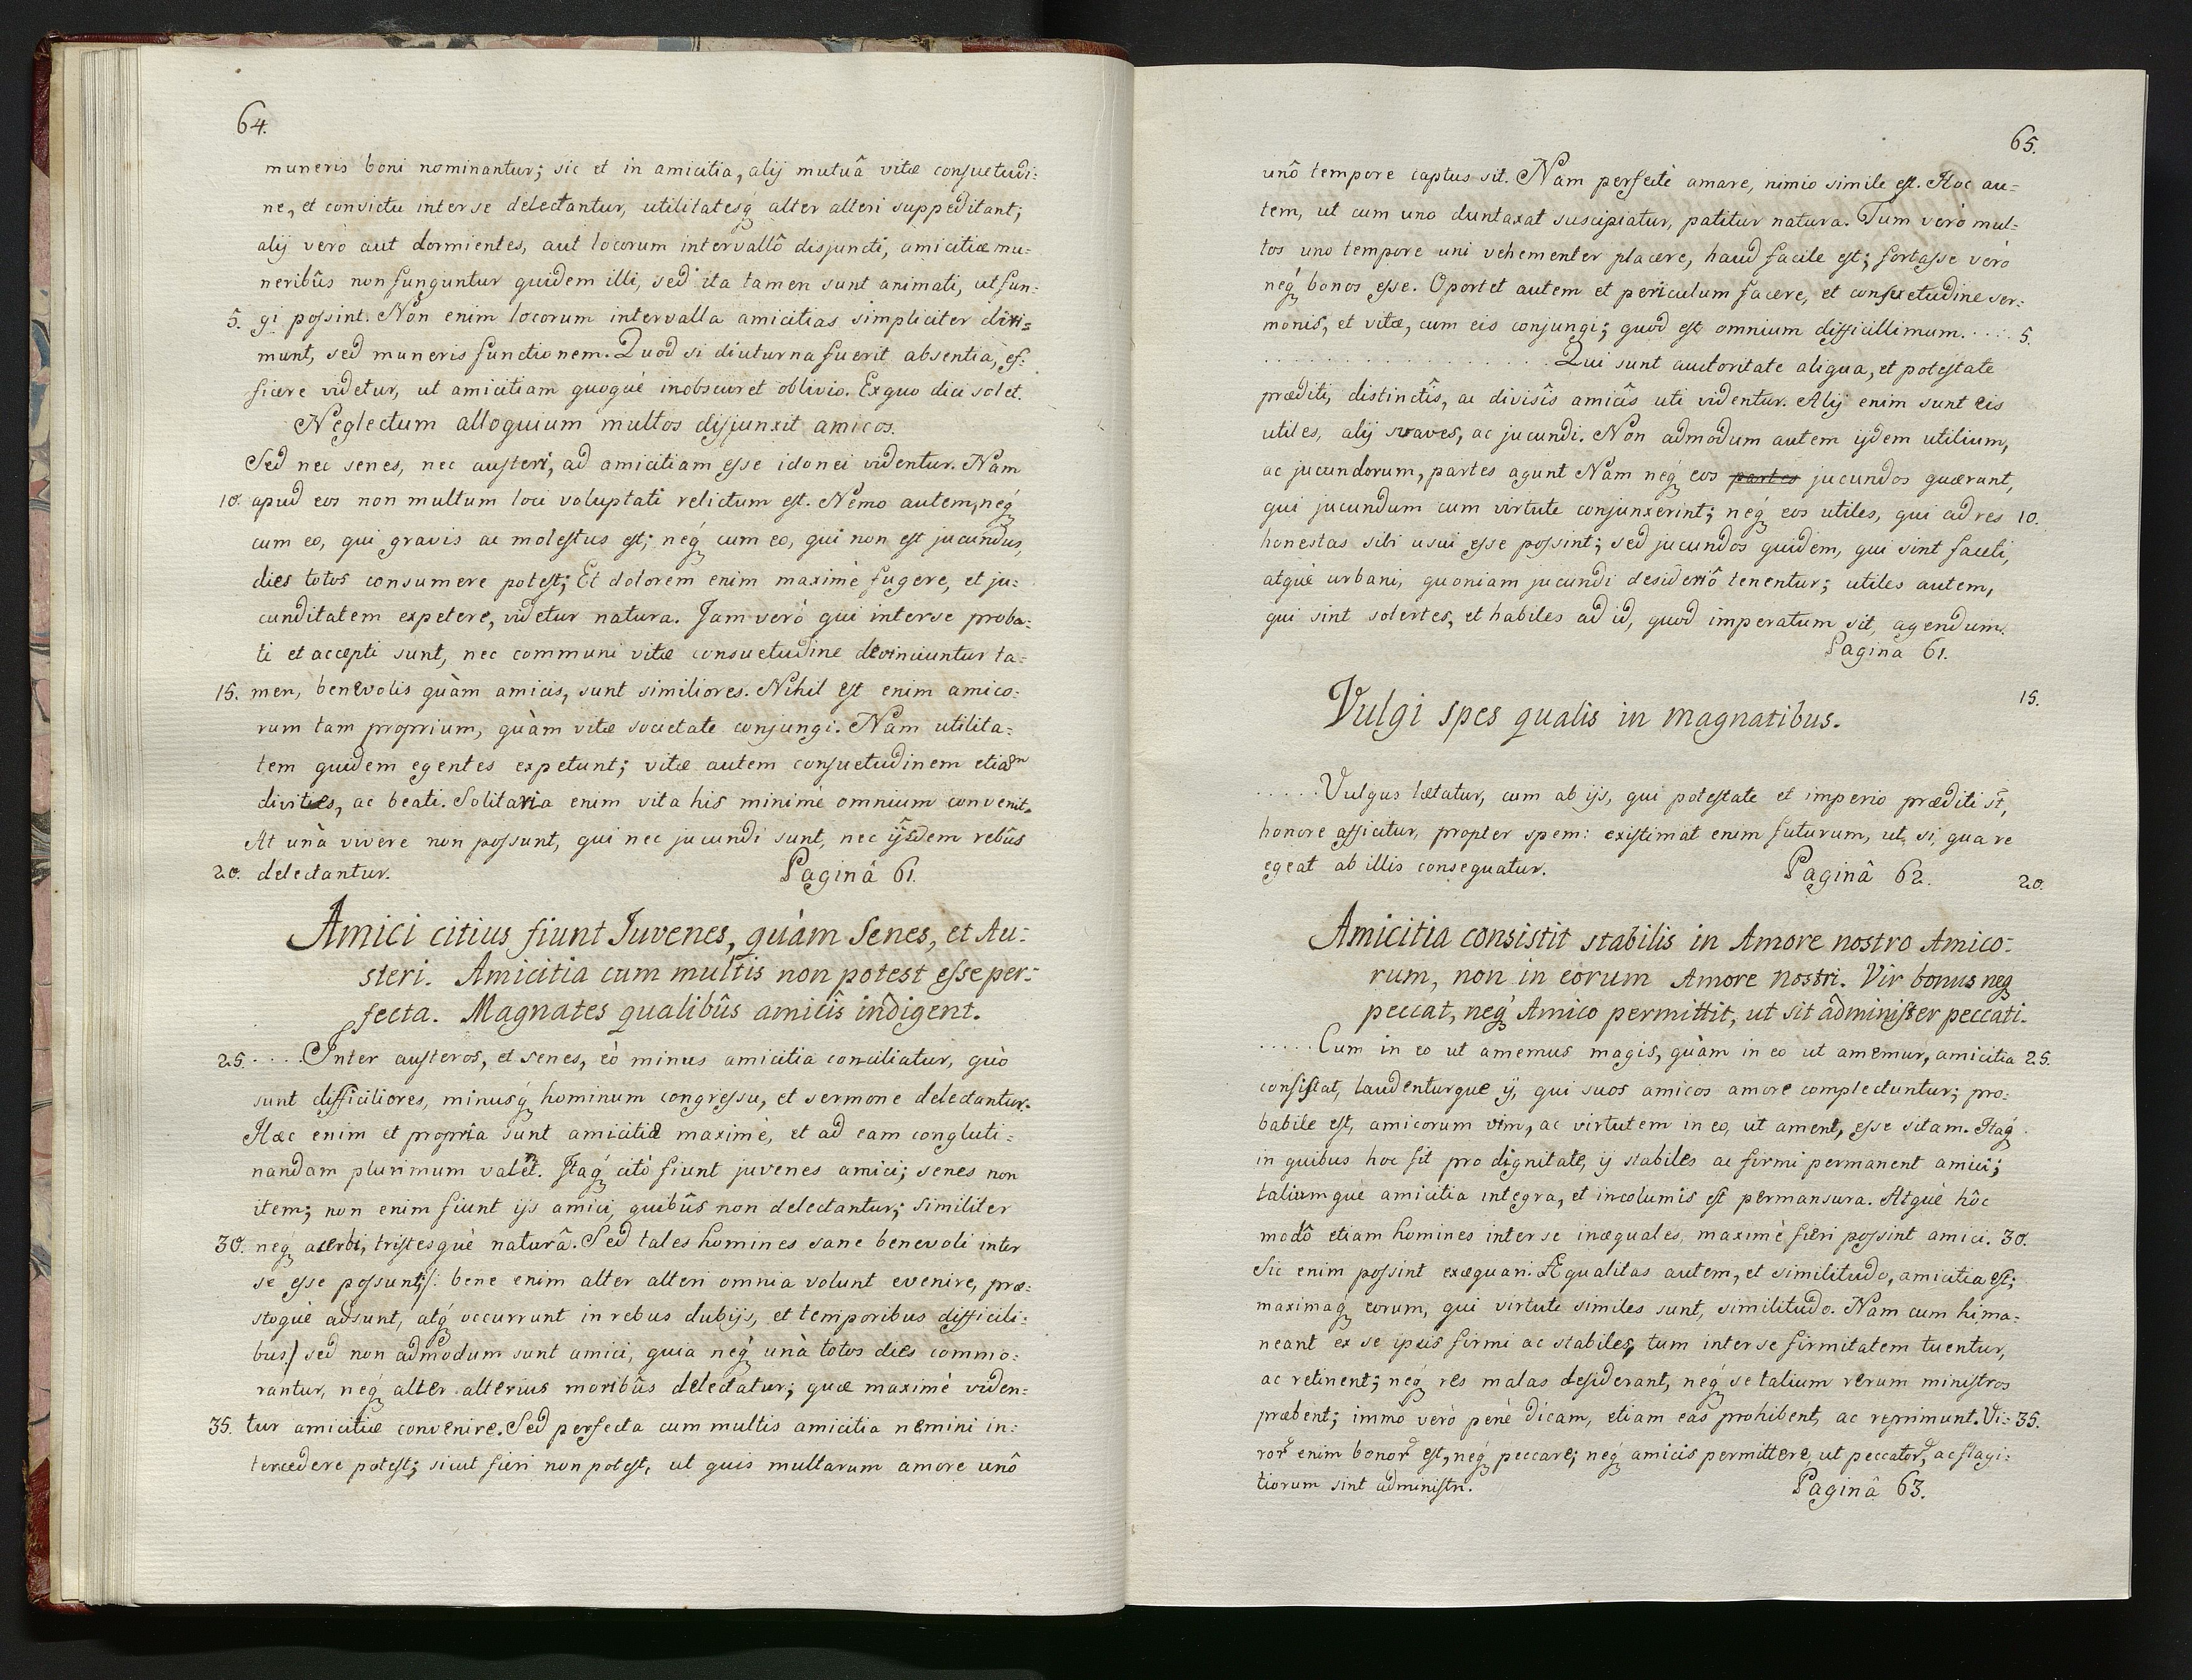 64.
muneris boni nominantur; sic et in amicitia, alij mutuâ vitæ consuetudi:
ne, et convictu inter se delectantur, utilitatesq́ alter alteri suppeditant;
alij verò aut dormientes, aut locorum intervallô disjuncti, amicitiæ mu:
neribûs non funguntur quidem illi, sed ita tamen sunt animati, ut fun:
5. gi possint. Non enim locorum intervalla amicitias simpliciter diri:
munt, sed muneris functionem. Quod si diuturna fuerit absentia, ef:
ficere videtur, ut amicitiam quoquè inobscuret oblivio. Ex quo dici solet.
Neglectum alloquium multos disjunxit amicos.
Sed nec senes, nec austeri, ad amicitiam esse idonei videntur. Nam
10. apud eos non multum loci voluptati relictum est. Nemo autem, neq́
cum eo, qui gravis ac molestus est; neq́ cum eo, qui non est jucundus
dies totos consumere potest; Et dolorem enim maximè fugere, et ju:
cunditatem expetere, videtur natura. Jam verò qui inter se proba:
ti et accepti sunt, nec communi vitæ consuetudine devinciuntur ta:
15. men, benevolis quàm amicis, sunt similiores. Nihil est enim amico:
rum tam proprium, quàm vitæ societate conjungi. Nam utilita:
tem quidem egentes expetunt; vitæ autem consuetudinem etiam
divites, ac beati. Solitaria enim vita his minimè omnium convenit.
At unà vivere non possunt, qui nec jucundi sunt, nec ijsdem rebûs
20. delectantur. Paginâ 61.
Amici citius fiunt Juvenes, quàm Senes, et Au:
steri. Amicitia cum multis non potest esse per:
fecta. Magnates qualibûs amicîs indigent.
25. .... Inter austeros, et senes, eò minus amicitia conciliatur, quò
sunt difficiliores, minusq́ hominum congressu, et sermone delectantur.
Hæc enim et propria sunt amicitiæ maximè, et ad eam congluti:
nandam plurimum valent. Itaq́ citò fiunt juvenes amici; senes non
item; non enim fiunt ijs amici, quibûs non delectantur; similiter
30. neq́ acerbi, tristesquè naturâ. Sed tales homines sane benevoli inter
se esse possunt;/: bene enim alter alteri omnia volunt evenire, præ:
stoquè adsunt, atq́ occurrunt in rebus dubijs, et temporibus difficili:
bus/ sed non admodum sunt amici, quia neq́ unà totos dies commo:
rantur, neq́ alter alterius moribûs delectatur; quæ maximè viden:
35. tur amicitiæ convenire. Sed perfecta cum multis amicitia nemini in:
tercedere potest; sicut fieri non potest, ut quis multarum amore unô
65.
unô tempore captus sit. Nam perfectè amare, nimio simile est. Hoc au:
tem, ut cum uno duntaxat suscipiatur, patitur natura. Tum verò mul:
tos uno tempore uni vehementer placere, haud facile est; fortasse verò
neq́ bonos esse. Oportet autem et periculum facere, et consuetudine ser:
monis, et vitæ, cum eis conjungi; quod est omnium difficillimum. .... 5.
.................... Qui sunt auctoritate aliqua, et potestate
præditi, distinctîs, ac divisîs amicîs uti videntur. Alij enim sunt eis
utiles, alij suaves, ac jucundi. Non admodum autem ijdem utilium,
ac jucundorum, partes agunt Nam neq́ eos partes jucundos quærunt,
qui jucundum cum virtute conjunxerint; neq́ eos utiles, qui ad res 10.
honestas sibi usui esse possint; sed jucundos quidem, qui sint faceti,
atquè urbani, quoniam jucundi desideriô tenentur; utiles autem,
qui sint solertes, et habiles ad id, quod imperatum sit, agendum.
Pagina 61.
15.
Vulgi spes qualis in magnatibus.
..... Vulgus lætatur, cum ab ijs, qui potestate et imperio præditi st̄,
honore afficitur, propter spem: existimat enim futurum, ut, si, qua re
egeat ab illis consequatur. Paginâ 62. 20.
Amicitia consistit stabilis in Amore nostro Amico:
rum, non in eorum Amore nostri. Vir bonus neq́
peccat, neq́ Amico permittit, ut sit administer peccati.
..... Cum in eo ut amemus magis, quàm in eo ut amemur, amicitia 25.
consistat, laudenturque ij, qui suos amicos amore complectuntur; pro:
babile est, amicorum vim, ac virtutem in eo, ut ament, esse sitam. Itaq́
in quibus hoc fit pro dignitate, ij stabiles ac firmi permanent amici;
taliumque amicitia integra, et incolumis est permansura. Atquè hôc
modô etiam homines inter se inæquales, maximè fieri possint amici. 30.
Sic enim possint exæquari. Æqualitas autem, et similitudo, amicitia est;
maximaq́ eorum, qui virtute similes sunt, similitudo. Nam cum hi ma:
neant ex se ipsis firmi ac stabiles, tum inter se firmitatem tuentur,
ac retinent; neq́ res malas desiderant, neq́ se talium rerum ministros
præbent; immò verò penè dicam, etiam eas prohibent, ac reprimunt. Vi: 35.
roꝝ enim bonoꝝ est, neq́ peccare; neq́ amicis permittere, ut peccatoꝝ, ac flagi:
tiorum sint administri. Paginâ 63.